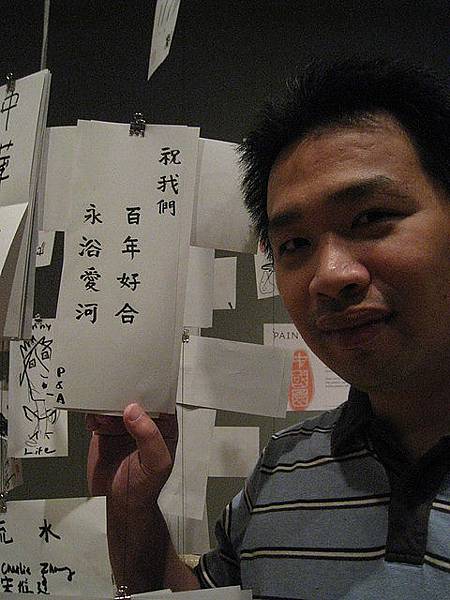 祝我們
百年好合
永浴愛河
中
華
P&A
Life
PAIN
流水
Charlie Zhang